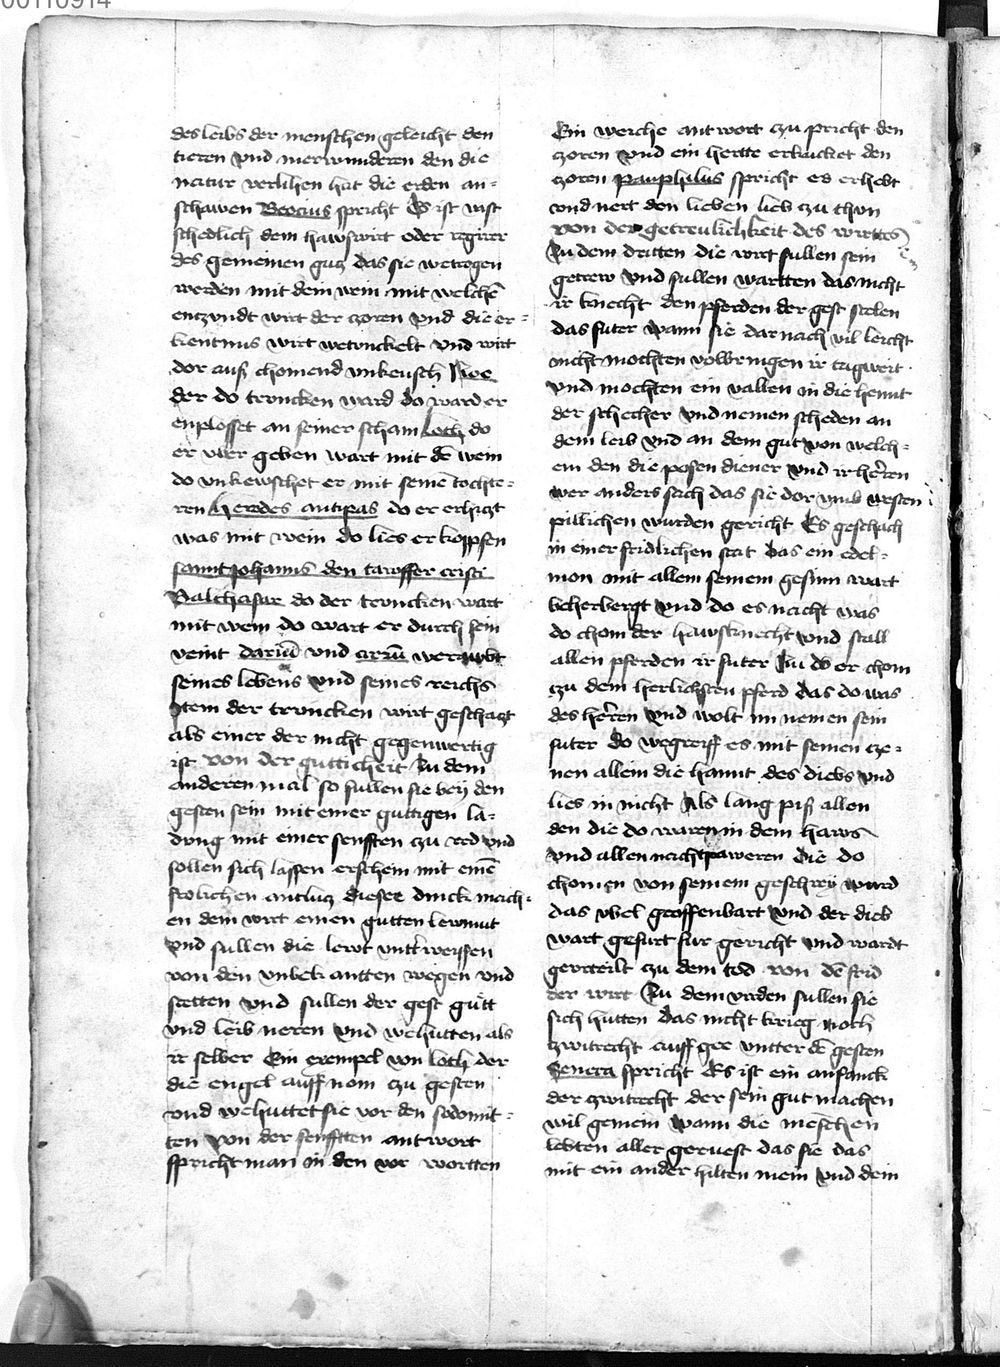 00110914
des leibs der menschen geleicht den
tieren vnd merwunderen den die
natur verlihen hat die erden an=
schawen Beocius spricht Es ist vast
schedlich dem hawswirt oder regirer
des gemeinen gutz das sie wetrogen
werden mit dem wein mit welchē
enczundt wirt der czoren vnd die er=
kentnus wirt wetunckelt vnd wirt
dor auß chomend vnkeusch Noe
der do truncken ward do ward er
enplosset an seiner scham Loth do
er vber geben wart mit dē wein
do vnkewschet er mit seinē tochte=
ren Herodes antipas do er erhiczt
was mit wein do lies er koppfen
sannt Johannis den tawffer cristi
Balthasar do der truncken wart
mit wein do wart er durch sein
veint dariū vnd cirū werawbt
seines lebens vnd seines reichs
Item der truncken wirt geschaczt
als einer der nicht gegenwertig
ist von der gutticheit Zu dem
anderen mal so sullen sie bey den
gesten sein mit einer guttigen la=
dung mit einer senfften czu red vnd
sollen sich lassen erschein mit einē
frolichen antlucz dieser dinck mach=
en dem wirt einen gutten lewmut
vnd sullen die lewt vnttweissen
von den vnbekantten wegen vnd
stetten vnd sullen der gest gutt
vnd leib neren vnd wehutten als
ir selber Ein exempel von Loth der
die engel auff nom czu gesten
vnd wehuttet sie vor den sodomit=
ten von der senfften antwort
spricht man in den vor wortten
Ein weiche antwort czu pricht den
czoren vnd ein hertte erkucket den
czoren panphilus spricht es erhebt
vnd nert den lieben lieb czu thun
von der getreulichkeit des wirttes
Zu dem dritten die wirt sullen sein
getrew vnd sullen wartten das nicht
ir knecht den pferden der gest stelen
das futer wann sie dar nach vil leicht
nicht mochten volbringen ir tagweit
vnd mochten ein vallen in die hennt
der schecher vnd nemen scheden an
dem leib vnd an dem gut von welch=
em den die posen diener vnd ir herren
wer anders sach das sie dor vmb westen
pillichen wurden gericht Es geschach
in einer fridlichen stat das ein edel=
mon mit allem seinem gesinn wart
beherbergt vnd do es nacht was
do chom der hawsknecht vnd stall
allen pferden ir futer Nu do er chom
czu dem herlichsten pferd das do was
des herren vnd wolt im nemen sein
futer do wegreiff es mit seinen cze=
nen allein die hannt des diebs vnd
lies in nicht Als lang piß allen
den die do waren in dem haws
vnd allen nachtpaweren die do
chomen von seinem geschrey ward
das vbel geoffenbart vnd der dieb
wart gefurt fur gericht vnd wardt
geurteilt czu dem tod von dē frid
der wirt Zu dem virden sullen sie
sich hutten das nicht krieg noch
zwitrecht auff gee vntter dē gesten
Seneca spricht Es ist ein anfanck
der zwitrecht der sein gut machen
wil gemein wann die menschen
lebten aller geruest das sie das
mit ein ander hilten mein vnd dein